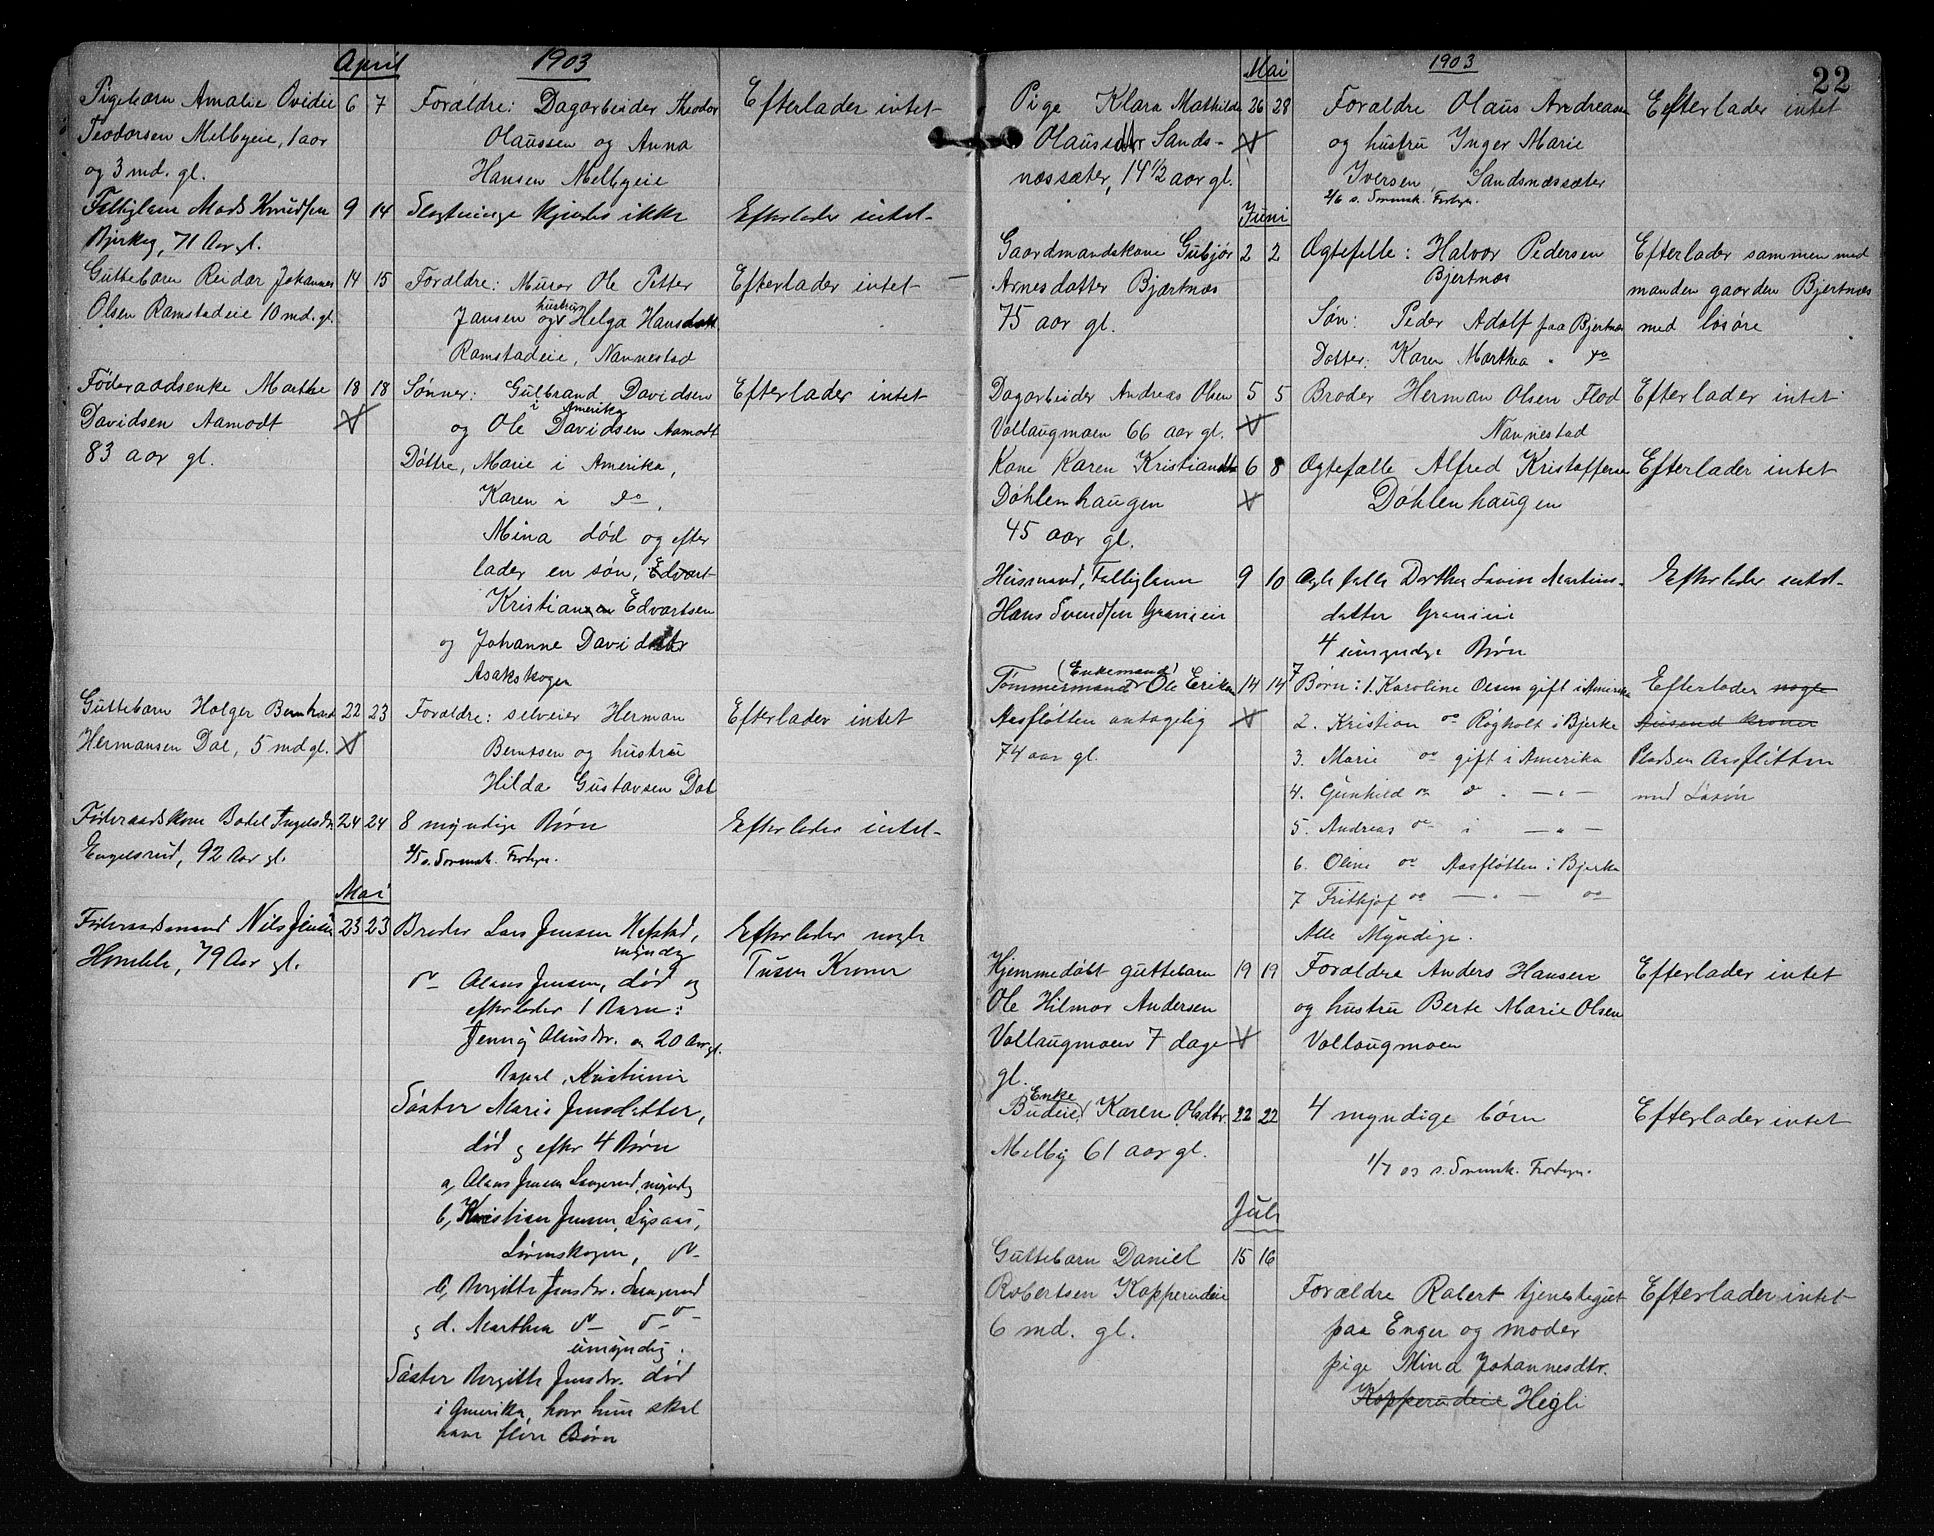 April 1903
Pigebarn Amalie Ovidie 6 7 Forældre: Dagarbeider Theodor Efterlader intet
Teodorsen Melbyeie, 1 aor Olaussen og Anna
og 3 md. gl. Hansen Melbyeie
Fattiglem Mads Knudsen 9 14 Slægtninge kjendes ikke Efterlader intet
Bjerkeg, 71 Aar gl.
Guttebarn Reidar Johannes 14 15 Foraldre: Murer Ole Petter Efterlader intet
Olsen Ramstadeie 10 md. gl. Jansen og hustru Helga Hansdatt
Ramstadeie, Nannestad
Føderaadsenke Marthe 18 18 Sønner: Gulbrand Davidsen Efterlader intet
i Amerika
Davidsen Aamodt og Ole Davidsen Aamodt
83 aar gl. Døttre, Marie i Amerika,
Karen i do,
Mina død og efter
lader en søn, Edvart
Kristiansen Edvartsen
og Johanne Davidsdtr
Asakskogen
Guttebarn Holger Bernhard 22 23 Foraldre: selveier Herman Efterlader intet
Hermansen Dal, 5 md gl. Berntsen og hustru
Hilda Gustavsen Dal
Føderaadskone Bodel Ingelsdtr. 24 24 8 myndige Børn Efterlader intet
Engelsrud, 92 Aar gl. 2/5 s. Sorensk. Fortegn.
Mai
Føderaadsmand Nils Jensen 23 23 Broder Lars Jensen Hefstad, Efterlader nogle
myndig
Homble, 79 Aar gl. Tusen Kroner
do Olaus Jensen, død og
efterlader 1 Barn:
Jenny Olausdr. ca 20 Aar gl.
Kristiania
Søster Marie Jensdatter,
død og efter 4 Børn
a, Olaus Jensen Langerud, myndig
b, Kristian Jensen, Lysaas,
Lørenskogen, do
c, Birgitte Jensdtr. Langerud
og d. Marthea do do
umyndig.
Søster Birgitte Jensdtr. død
i Amerika, hvor hun skal
have flere Børn
22
Mai 1903
Pige Klara Mathilde 26 28 Foraldre Olaus Andreasen Efterlader intet
Olausdtr Sands- og hustru Inger Marie
næssæter, 14 1/2 aar gl. Iversen Sandsnæssæter
2/6 s. Sorensk. Fortegn.
Juni
Gaardmandskone Gubjør 2 2 Ægtefelle: Halvor Pedersen Efterlader sammen med
Arnesdatter Bjærtnæs Bjertnæs manden gaarden Bjertnæs
75 aar gl. Søn: Peder Adolf paa Bjertnæs med løsøre
Datter: Karen Marthea " do
Dagarbeider Andreas Olsen 5 5 Broder Herman Olsen Flod Efterlader intet
Vollaugmoen 66 aar gl. Nannestad
Kone Karen Kristiansdtr 6 8 Ægtefælle Alfred Kristoffersen Efterlader intet
Døhlenhaugen Døhlenhaugen
45 aar gl.
Husmand, Fattiglem 9 10 Ægtefælle Dorthea Lovise Martins- Efterlader intet
Hans Svendsen Graneie datter Graneie
4 umyndige Børn
(Enkemand)
Tømmermand Ole Eriksen 14 14 7 Børn: 1. Karoline Olsen gift i Amerika Efterlader nogle
Aasfløtten antagelig 2. Kristian do Røgholt i Bjerke tusend kroner
74 aar gl. 3. Marie do gift i Amerika Pladsen Aasfløtten
4. Gunhild do do - " - med Løsøre
5. Andreas do i - " -
6. Oline do Aasfløtten i Bjerke
7 Frithjof do - " - do
Alle Myndige.
Hjemmedøbt guttebarn 19 19 Foraldre Anders Hansen Efterlader intet
Ole Hilmar Andersen og hustru Berte Marie Olsen
Vollaugmoen 7 dage Vollaugmoen
gl.
Enke
Budeie, Karen Olsdtr. 22 22 4 myndige børn Efterlader intet
Melby 61 aar gl. 1/7 03 s. Sorensk. Fortegn.
Juli
Guttebarn Daniel 15 16
Robertsen Kopperudeie Forældre Robert tjenestegut Efterlader intet
6 md. gl. paa Enger og moder
pige Mina Johannesdtr.
Kopperudeie Hegli